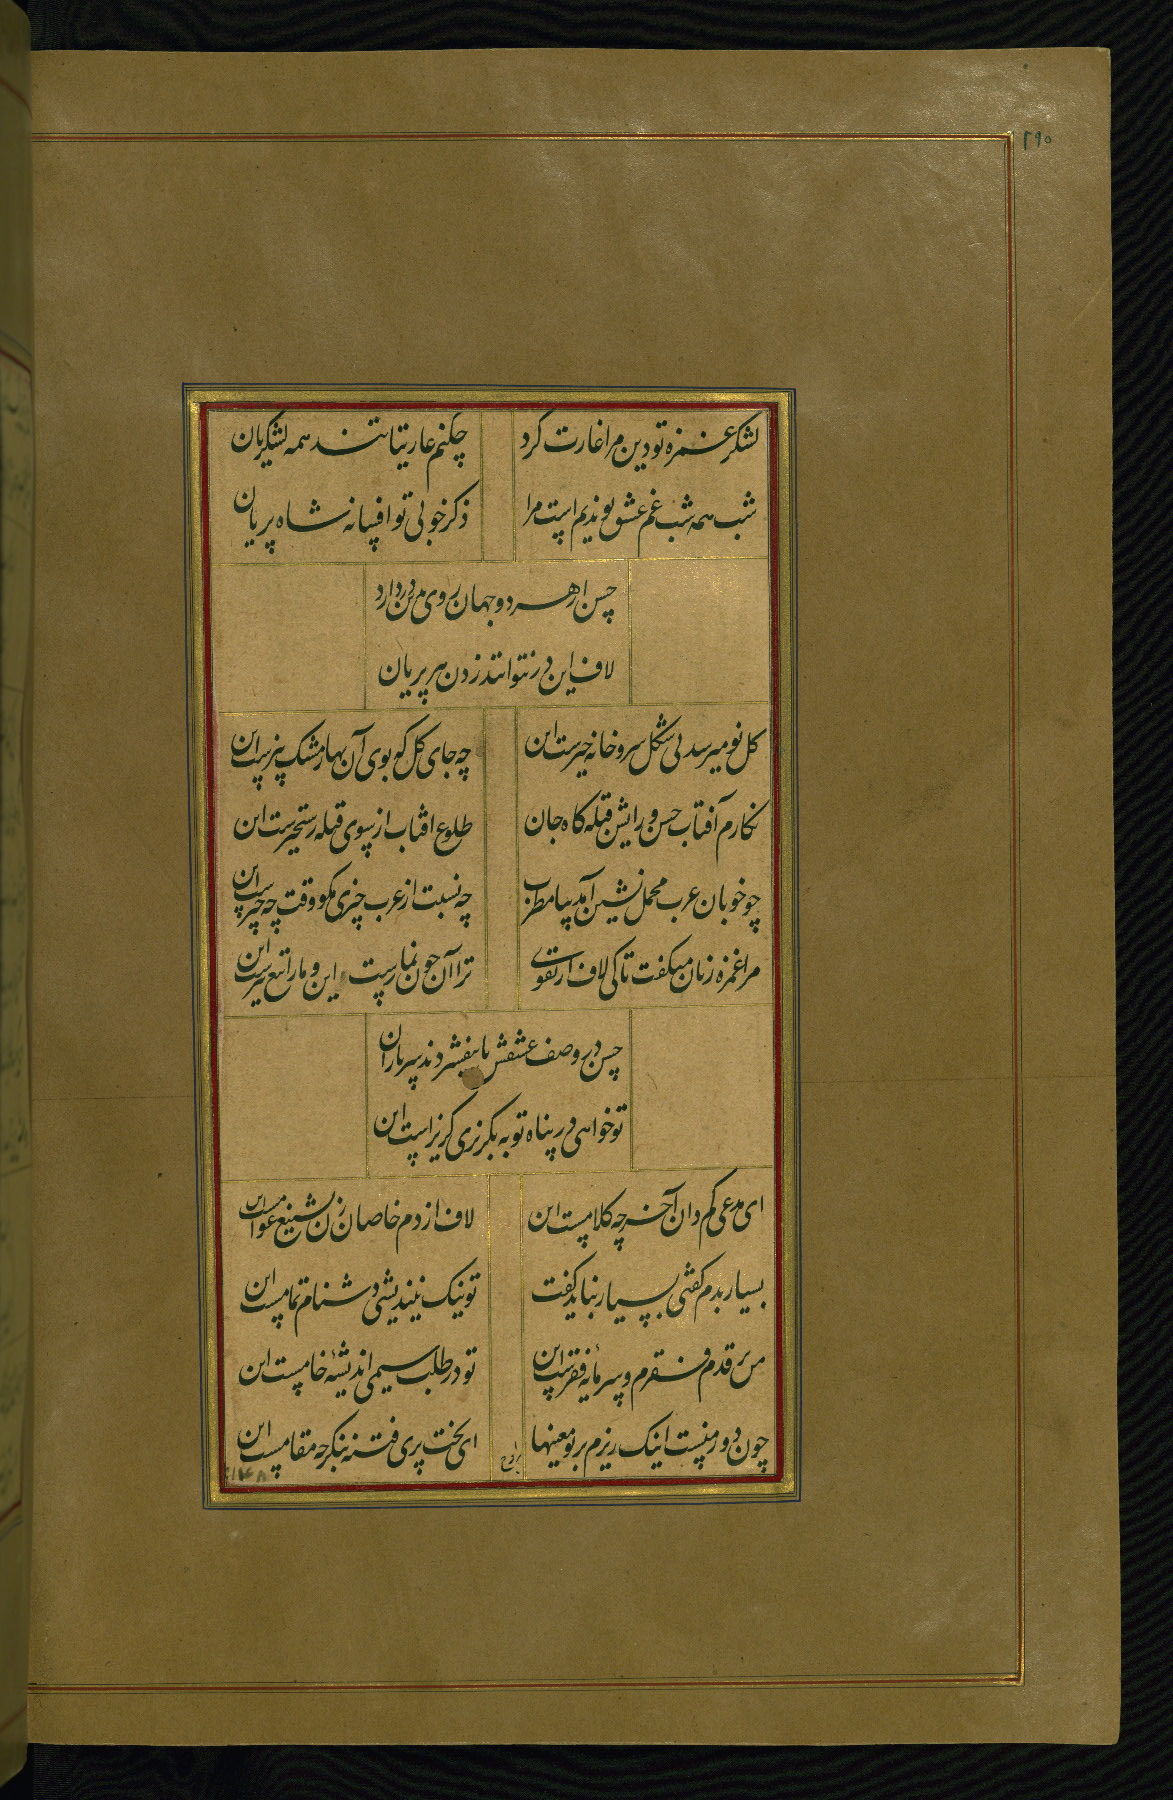 ۲۹۰
لشکر غمزه تو دین مرا غارت کرد
چکنم عاریتا بتند همه لشکریان
شب همه شب غم عشق تو ندیم است مرا
ذکر خوبی تو افسانه شاه پریان
حسن از هر دو جهان روی من دارد
لاف این در نتوانند زدن هر پریان
کل نو میرسد لی شکل سرو خانه خیزست این
چه جای کل که بوی آن بهار مشک بیزست این
نکارم آفتاب حسن و رایش قبله کاه جان
طلوع افتاب از سوی قبله رستخیزست این
چو خوبان عرب محمل نشین آمد بیا مطرب
چه نسبت از عرب چیزی مکو وقت چه چیزست این
مرا غمزه زنان میکفت تا کی لاف از تقوی
ترا آن چون نمازست این و ما را تیغ تیزست این
حسن در وصف عشقش با بیفشردند سرباران
تو خواهی در پناه توبه بکریزی کریزاست این
ای مدعی کم دان آخر چه کلامست این
لاف از دم خاصان زن تشنیع عوامست این
بسیار بدم کفتی بسیار نباید کفت
تو نیک نیندیشی دشنام تمامست این
من بر قدم فقرم و سرمایه فقرست این
تو در طلب سیمی اندیشه خامست این
چون دور منست اینک ریزم بر تو معینها
ای بخت پری فتنه بنکر چه مقامست این